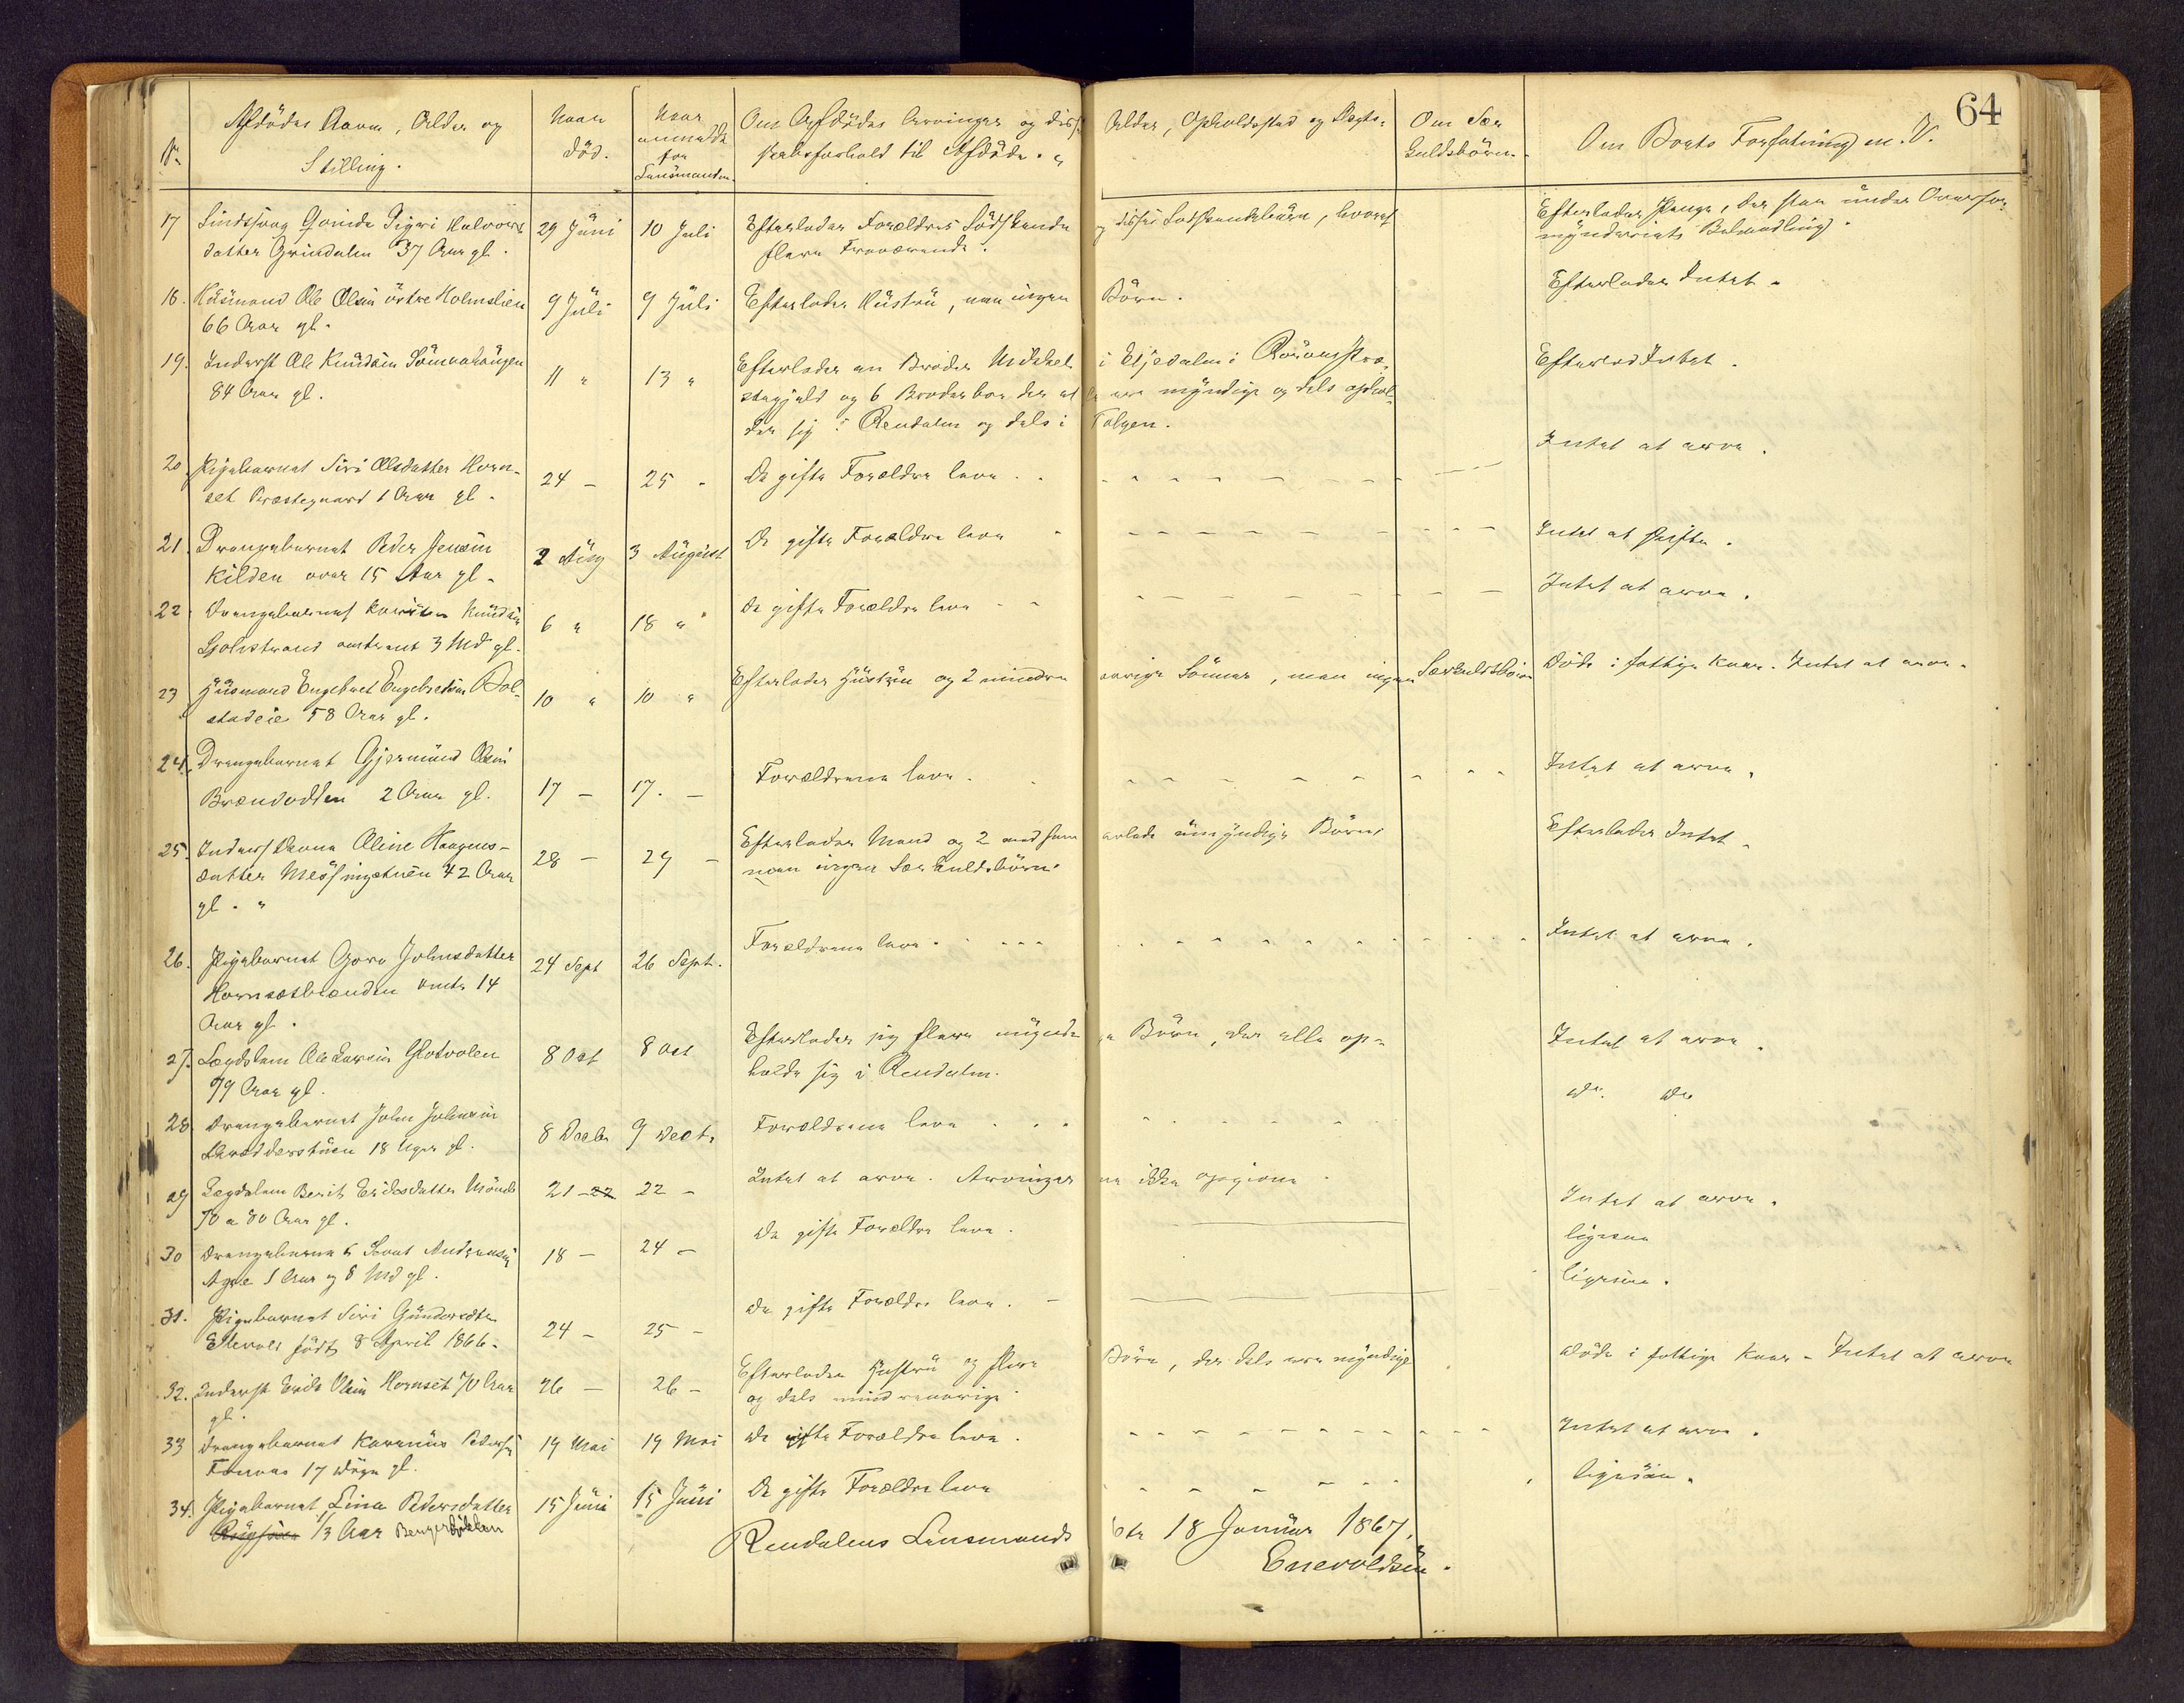 64
No
Afdödes Navn, Alder og
Stilling.
Naar
död.
Naar
anmeldt
for
Lensmanden.
Om Afdödes Arvinger og disses Alder, Opholdssted og Slægt-
skabsforhold til Afdöde.
Om Sær
kuldsbörn.
Om Boets Forfatning m. V.
17 Sindssvag Qvinde Sigri Halvors- 29 Juni 10 Juli Efterlader Forældres Södskende og disses Sødskendebörn, hvoraf Efterlader Penge, der staa under Overfor-
datter Grindalen 37 Aar gl. flere Fraværende. mynderiets Behandling.
18. Husmand Ole Olsen östre Holmslien 9 Juli 9 Juli Efterlader Hustru, men ingen Börn. Efterlader Intet.
66 Aar gl.
19. Inderst Ole Knudsen Sömaahaugen 11 " 13 " Efterlader en Broder Mikkel i Elvedalen i Præ- Efterlod Intet.
84 Aar gl. stegjeld og 6 Broderbørn der alle ere myndige og dels ophol-
der sig i Rendalen og dels i Tolgen.
20. Pigebarnet Siri Olsdatter Horn- 24 - 25 - De gifte Forældre leve. Intet at arve.
set Præstegaard 1 Aar gl.
21. Drengebarnet Peder Jensen 2 Aug 3 August De gifte Forældre leve Intet at skifte.
Kilden over 15 Aar gl.
22. Drengebarnet Knudsen 6 " 18 " De gifte Forældre leve Intet at arve.
omtrent 3 Md gl.
23 Husmand Engebret Engebretsen Bol- 10 " 10 " Efterlader Hustru og 2 mindreaarige Sönner, men ingen Særkuldsbörn Döde i fattige Kaar. Intet at arve.
stadeie 58 Aar gl.
24. Drengebarnet Gjermund Olsen 17 - 17. - Forældrene leve. Intet at arve.
Brændodden 2 Aar gl.
25. Inderstkone Oline Haagens- 28 - 29 - Efterlader Mand og 2 med ham avlede umyndige Börn, Efterlader Intet.
datter Messingstuen 42 Aar men ingen Særkuldsbörn.
gl. "
26. Pigebarnet Goro Johnsdatter 24 Sept 26 Sept. Forældrene leve. Intet at arve.
Hornsetbrænden omtr 14
Aar gl.
27. Lægdslem Ole Larsen Flotvolen 8 Oct 8 Oct Efterlader sig flere myndige Börn, der alle op- Intet at arve.
79 Aar gl. holde sig i Rendalen.
28 Drengebarnet John Johnsen 8 Decbr 9 Decbr Forældrene leve do. do
18 Uger gl.
29 Lægdslem Berit Eriksdatter 21 - 22 22 - Intet at arve. Arvingerne ikke opgivne. Intet at arve.
70 a 80 Aar gl.
30 Drengebarnet Andreasen 18 - 24 - De gifte Forældre leve. ligesaa
1 Aar og 8 Md gl.
31. Pigebarnet Siri Gundersdtr 24 - 25 - De gifte Forældre leve. ligesaa.
Ellevold född 8 April 1866.
32. Inderst Erik Olsen Hornset 70 Aar 26 - 26 - Efterlader Hustru og flere Börn, der dels ere myndige Döde i fattige Kaar - Intet at arve
gl. og dels mindreaarige.
33 Drengebarnet Karenius Pedersen 19 Mai 19 Mai De gifte Forældre leve. Intet at arve.
17 Döge gl.
34. Pigebarnet Lina Pedersdatter 15 Juni 15 Juni De gifte Forældre leve ligesaa.
1/3 Aar
Rendalens Lensmandsbtr 18 Januar 1867.
Enevoldsen.